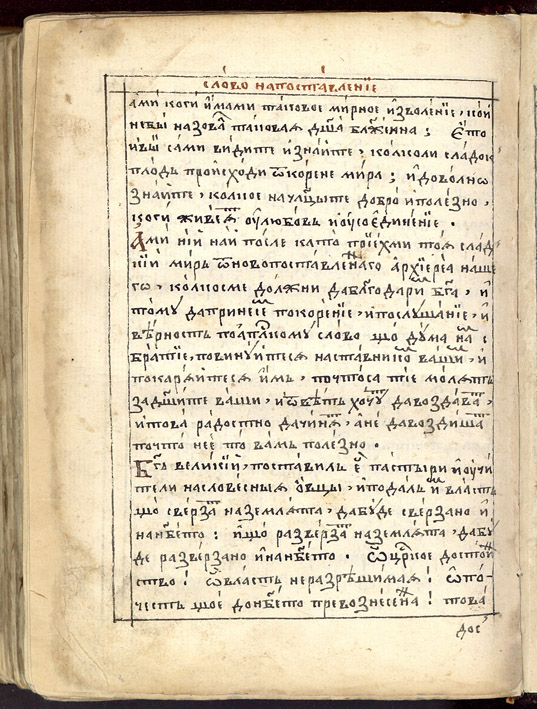 сло́во напоста́вленїе
ами коги и҆мами таковое мирное и҆зволенїе, кои
небы̀ назова̀ таковаѧ дш҃а бл҃женна ; Е҆то
и҆вы̀ сами видите и҆знайте, колколи сладок
плодъ происходи ѿкорене мира ; и҆доволнѡ
знайте, колкое на ᲂу҆
добро̀ и҆полезно,
коги живеѧ ᲂу҆любовь и҆ᲂу҆сое҆диненїе .
Ами нїй най после като прїехми тоѧ слад
кїй миръ ѿновопоставленнаго а҆рхїере́а наше
гѡ, колкосме должни дабл҃годари бг҃а, и҆
тому да принесе покоренїе, и҆послꙋшанїе, и҆
вѣрность поап҇лкому слово що̀ дума на с
братїе, повинꙋйтесѧ наставникѡ ваши, и҆
покарѧйтесѧ и҆мъ, почтоса тїе молѧтъ
задш҃ите ваши, и҆ѿвѣтъ хочꙋ давоздава,
и҆това радостно дачинѧ, а҆не давоздиша
почто нее҆ то вамъ полезно .
Бг҃ъ великїй, поставилъ е҆ пастыри и҆ᲂу҆чи
тели насловесныѧ ѻ҆вцы, и҆подалъ и҆ власть
що сверза наземлѧта, дабꙋде сверзано и҆
нанб҃ето : и҆що̀ разверза наземлѧта, дабꙋ
де разверзано и҆нанб҃ето . Ѽцр҇кое достой
ство ! ѽ власть неразрѣшимаѧ ! ѽ по-
честь щое донб҃ето превознесенна ! това
дос